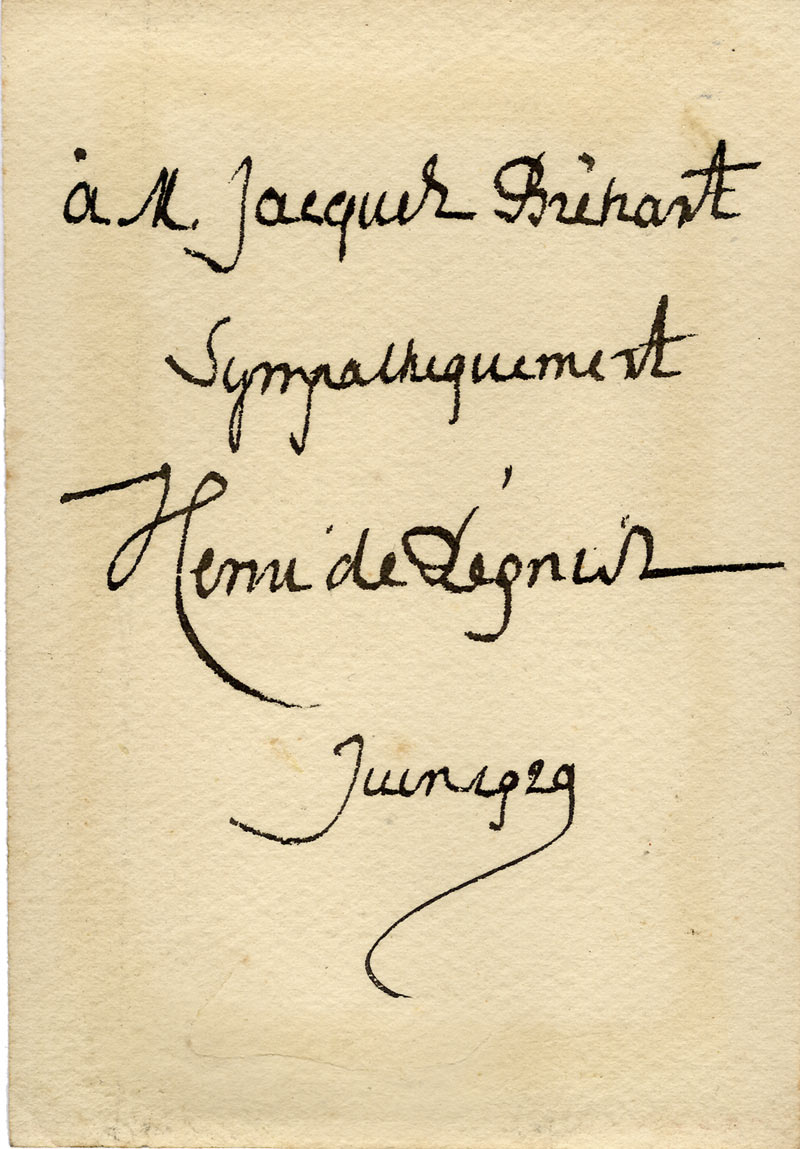 à M. Jacques Bréhant
Sympathiquement
Henri de Régnier
Juin 1929